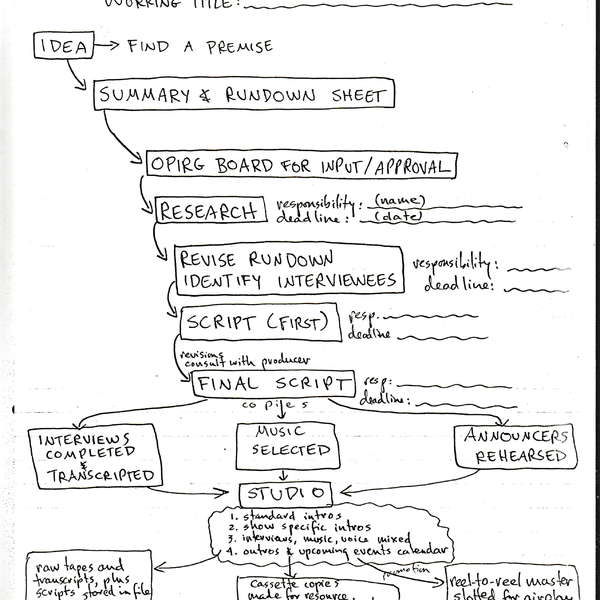 WORKING TITLE:
IDEA → FIND A PREMISE
SUMMARY & RUNDOWN SHEET
OPIRG BOARD FOR INPUT/APPROVAL
RESEARCH
responsibility: (name)
deadline: (date)
REVISE RUNDOWN
IDENTIFY INTERVIEWEES
responsibility:
deadline:
SCRIPT (FIRST)
resp.
deadline
revisions
consult with producer
FINAL SCRIPT
resp:
deadline:
copies
INTERVIEWS
COMPLETED
&
TRANSCRIPTED
MUSIC
SELECTED
ANNOUNCERS
REHEARSED
STUDIO
1. standard intros
2. show specific intros
3. interviews, music, voice mixed
4. outros & upcoming events calendar
raw tapes and
transcripts, plus
scripts stored in file
cassette copies
made for resource
promotion
reel-to-reel master
slotted for airplay